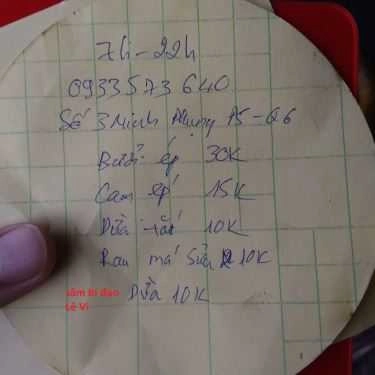 7h - 22h
0933573 640
Số 3 Minh Phụng P5 - Q6
Bưởi ép 30K
Cam ép 15K
Dừa tắc 10K
Rau má Sữa 10K
Dừa 10K
sâm bí đao
Lê Vi